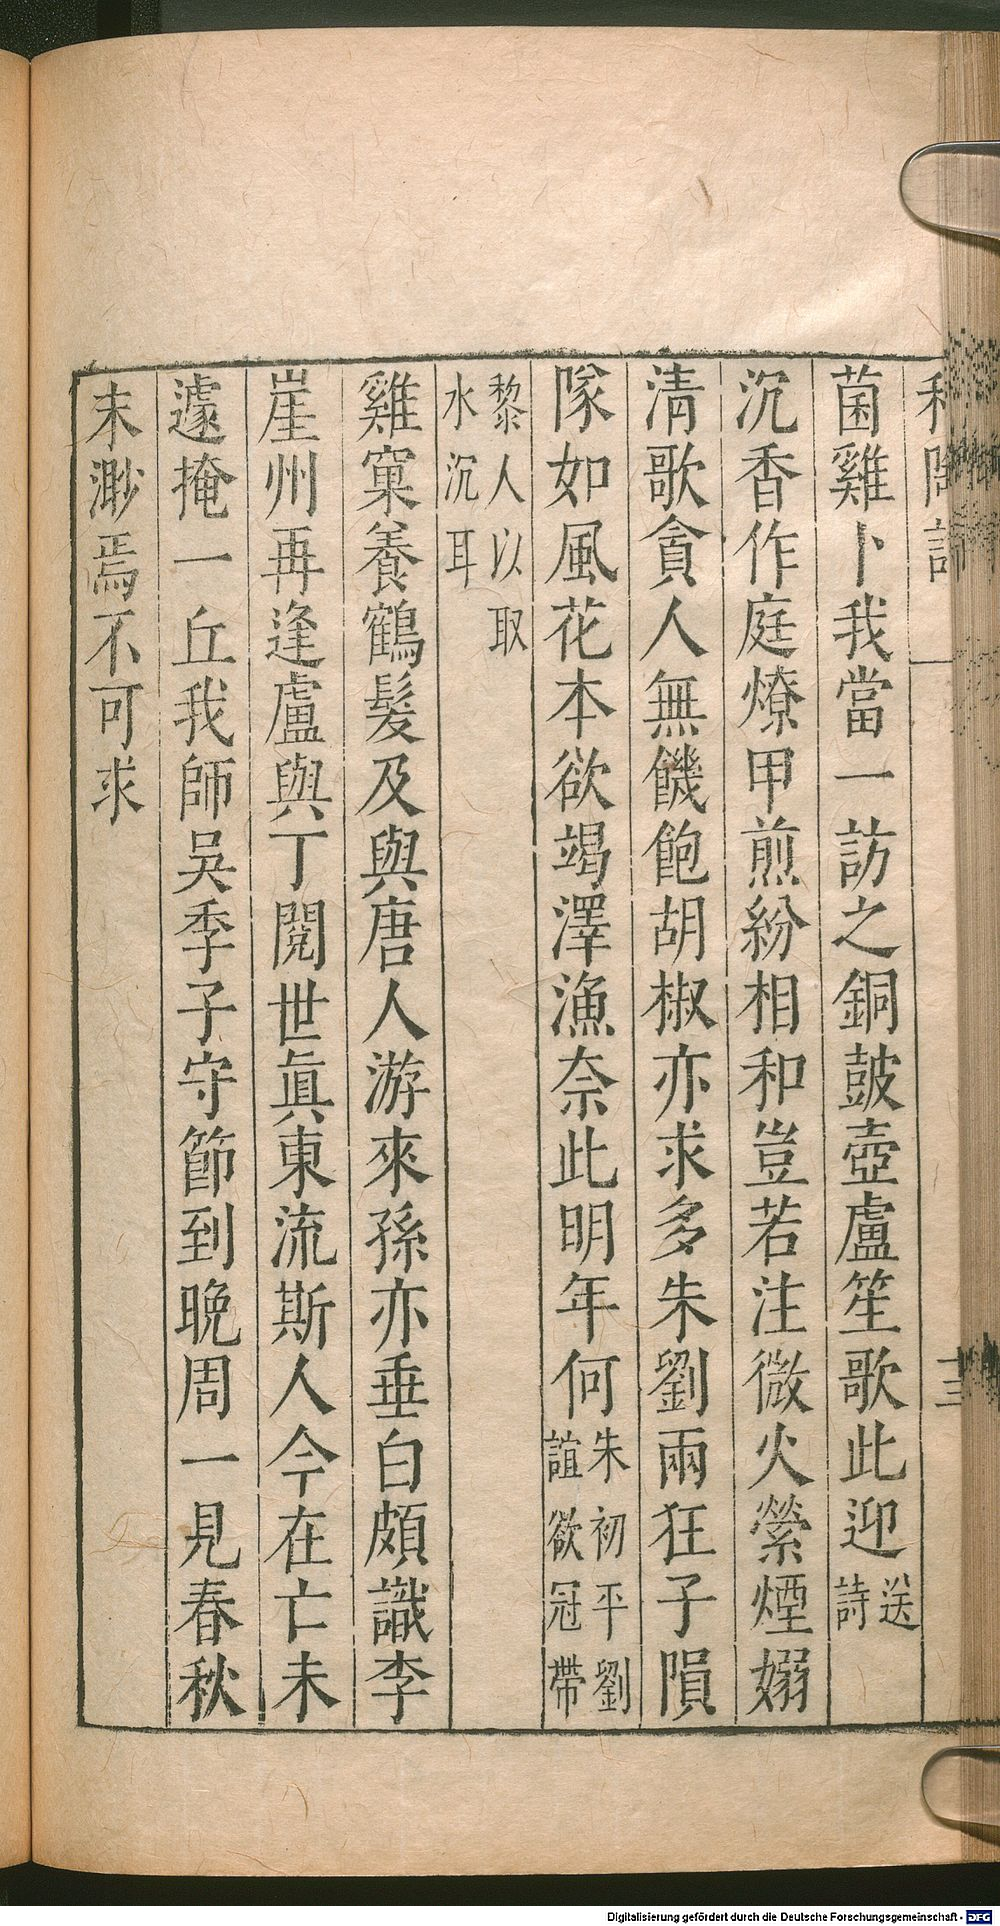 和陶詩 一 十三
菌雞卜我當一訪之銅鼓壺盧笙歌此迎送詩
沉香作庭燎甲煎紛相和豈若注微火縈煙嫋
清歌貪人無饑飽胡椒亦求多朱劉兩狂子隕
隊如風花本欲竭澤漁奈此明年何朱初平劉誼欲冠帶
黎人以取水沉耳
雞窠養鶴髮及與唐人游來孫亦垂白頗識李
崖州再逢盧與丁閱世眞東流斯人今在亡未
遽掩一丘我師吳季子守節到晚周一見春秋
末渺焉不可求
Digitalisierung gefördert durch die Deutsche Forschungsgemeinschaft - DFG